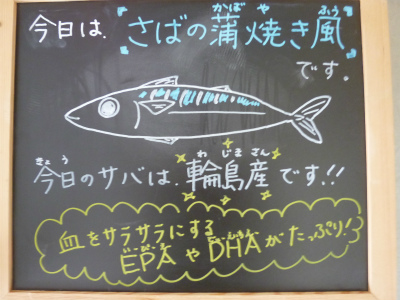 今日は、『さばの蒲焼き風』
です。
今日のサバは、輪島産です!!
血をサラサラにする
EPAやDHAがたっぷり!